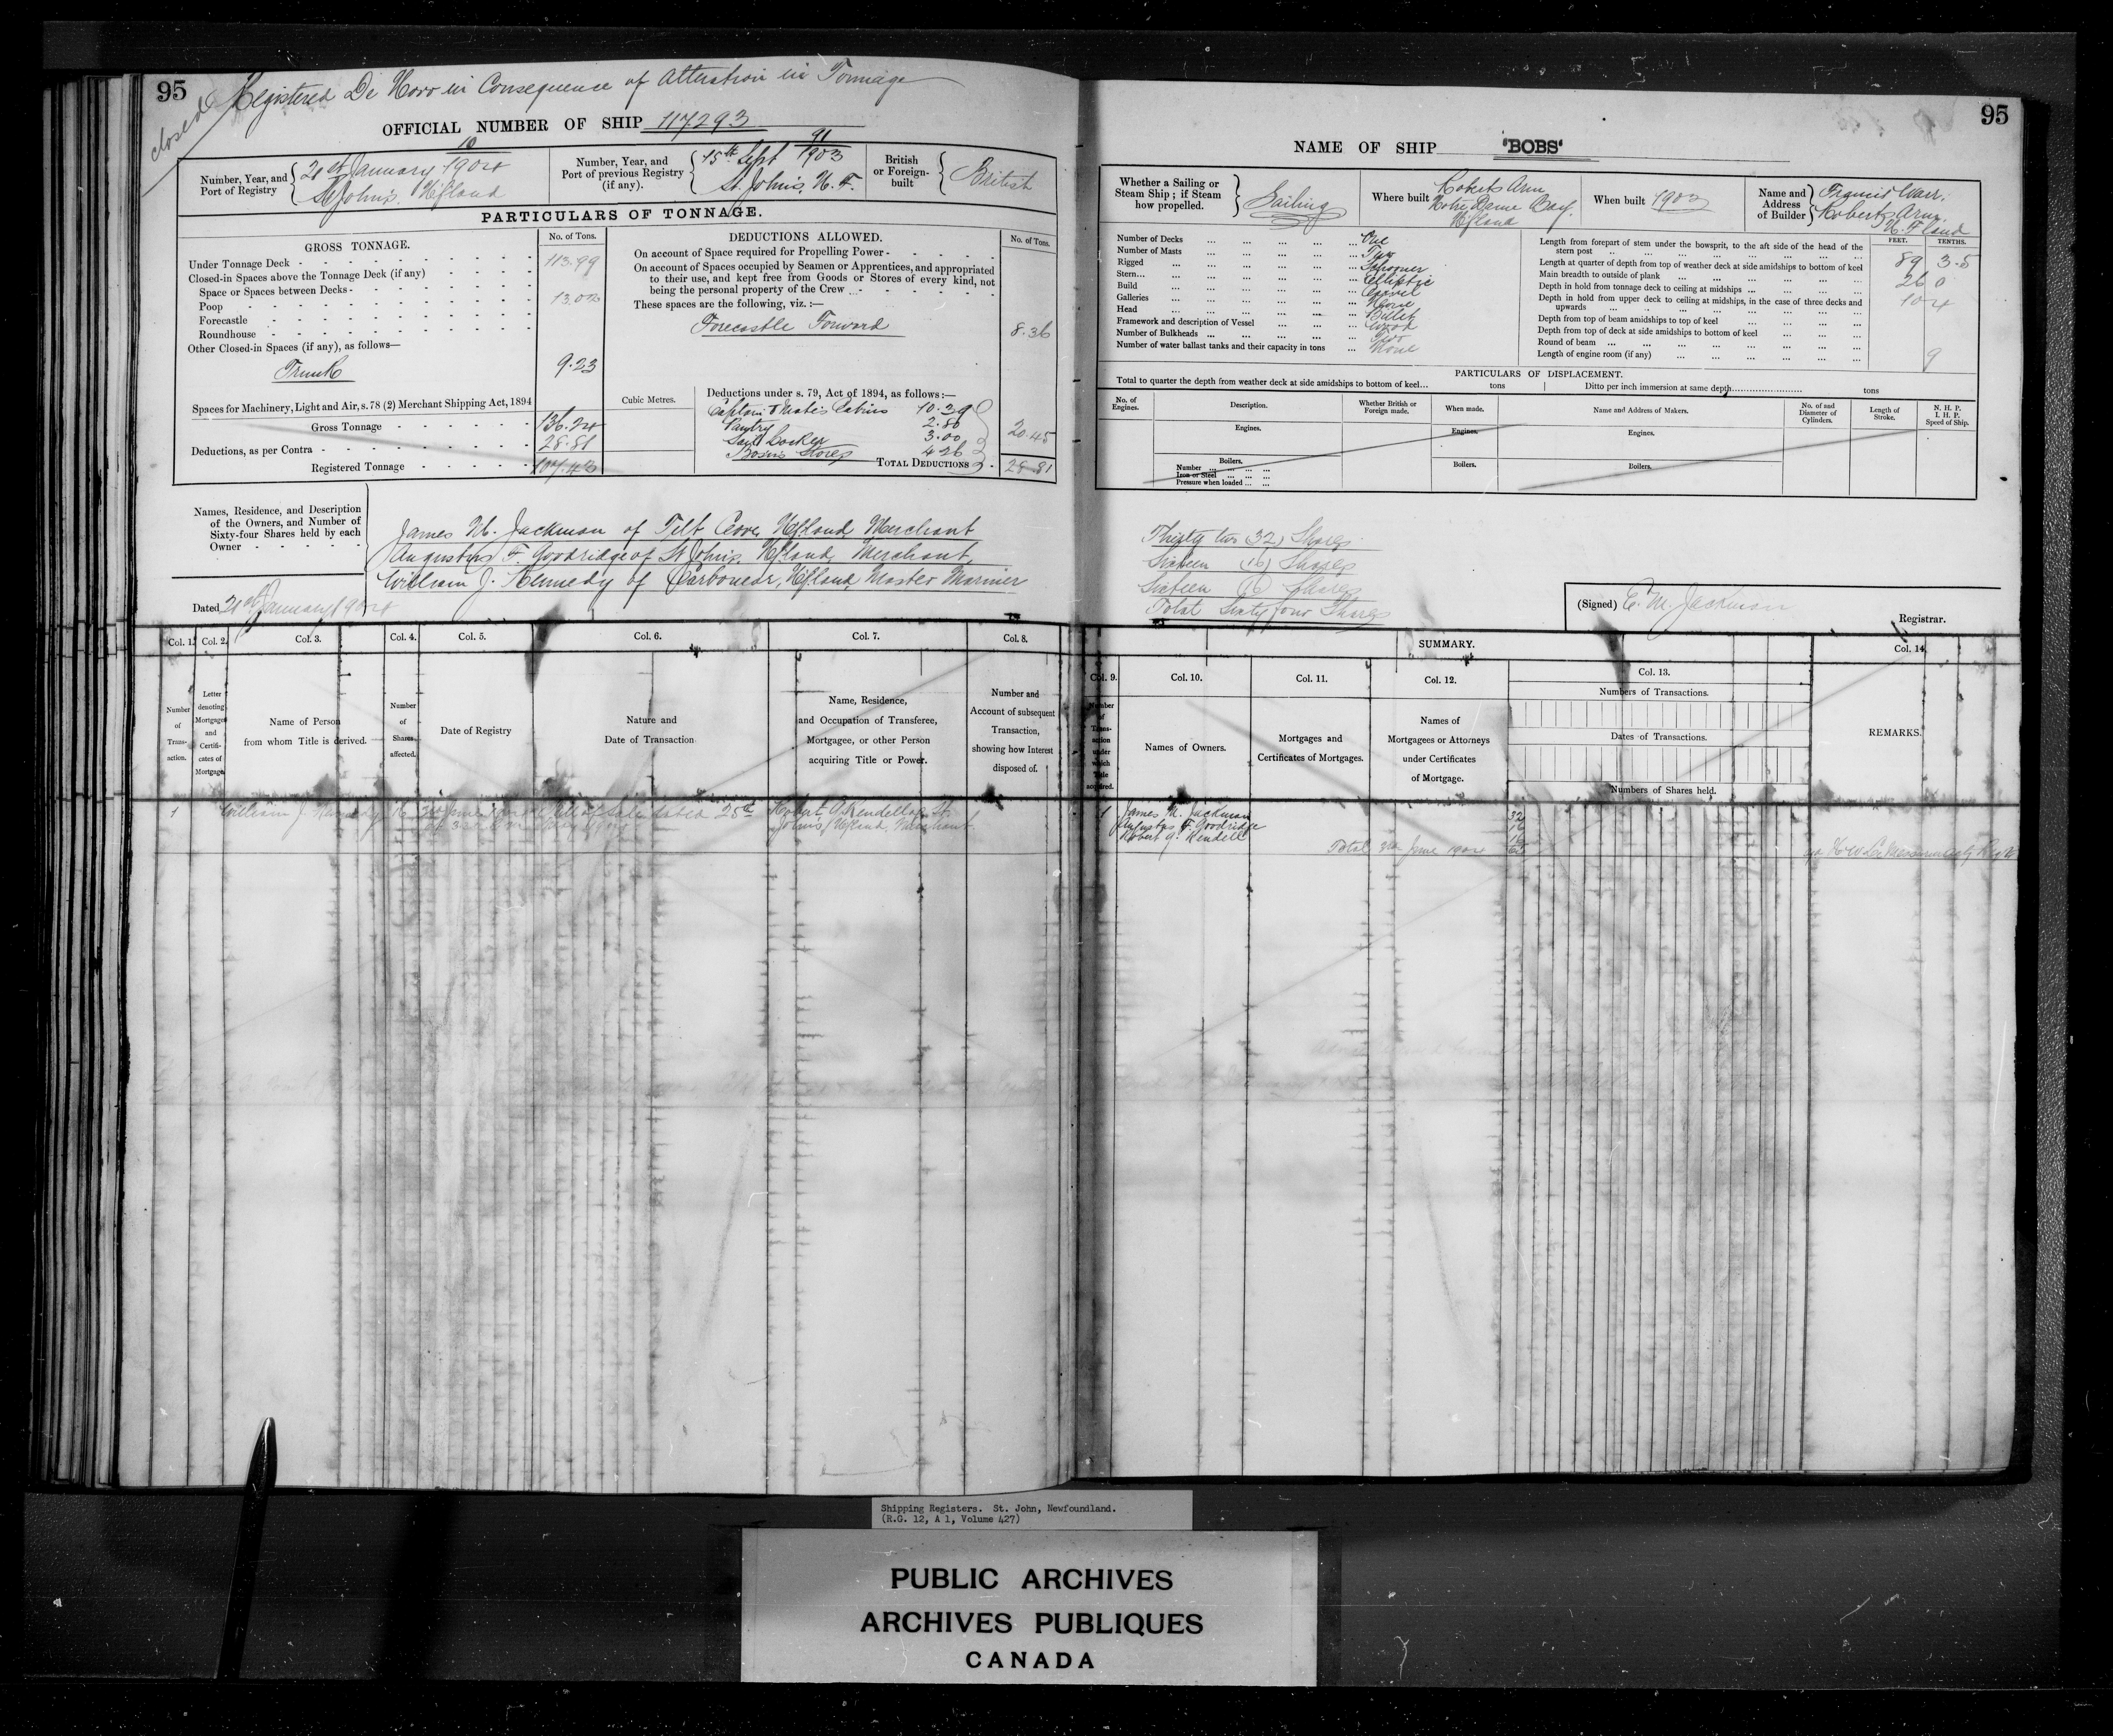 95
closed Registered De Novo in Consequence of Alteration in Tonnage
OFFICIAL NUMBER OF SHIP 117293
Number, Year, and Port of Registry
10
21st January 1904
St John's Nfland
Number, Year, and Port of previous Registry (if any).
91
15th Sept 1903
St. John's, N. F.
British or Foreign-built
British
PARTICULARS OF TONNAGE.
GROSS TONNAGE.
No. of Tons.
Under Tonnage Deck 113.99
Closed-in Spaces above the Tonnage Deck (if any)
Space or Spaces between Decks
Poop 13.02
Forecastle
Roundhouse
Other Closed-in Spaces (if any), as follows—
Trunk 9.23
Spaces for Machinery, Light and Air, s. 78 (2) Merchant Shipping Act, 1894
Gross Tonnage 136.24
Deductions, as per Contra 28.81
Registered Tonnage 107.43
DEDUCTIONS ALLOWED.
No. of Tons.
On account of Space required for Propelling Power
On account of Spaces occupied by Seamen or Apprentices, and appropriated
to their use, and kept free from Goods or Stores of every kind, not
being the personal property of the Crew
These spaces are the following, viz. :—
Forecastle Forward 8.36
Cubic Metres.
Deductions under s. 79, Act of 1894, as follows:—
Captain & Mate's Cabins 10.39
Pantry 2.80
Sail Locker 3.00
Bosun's Stores 4.26
20.45
TOTAL DEDUCTIONS 28.81
Names, Residence, and Description
of the Owners, and Number of
Sixty-four Shares held by each
Owner
James M. Jackman of Tilt Cove, Nfland, Merchant
Augustus F. Goodridge of St John's, Nfland, Merchant,
William J. Kennedy of Carbonear, Nfland, Master Mariner
Dated 21st January 1904
Col. 1. Col. 2. Col. 3. Col. 4. Col. 5. Col. 6. Col. 7. Col. 8.
Number of Trans-action.
Letter denoting Mortgages and Certifi-cates of Mortgage.
Name of Person from whom Title is derived.
Number of Shares affected.
Date of Registry
Nature and Date of Transaction.
Name, Residence, and Occupation of Transferee, Mortgagee, or other Person acquiring Title or Power.
Number and Account of subsequent Transaction, showing how Interest disposed of.
1 William J. Kennedy 16 3rd June Bill of Sale dated 28th Robert G. Rendell of St.
John's, Nfland, Merchant
95
NAME OF SHIP 'BOBS'
Whether a Sailing or Steam Ship ; if Steam how propelled.
Sailing
Where built
Roberts Arm
Notre Dame Bay,
Nfland
When built 1903
Name and Address of Builder
Francis Warr,
Roberts Arm,
N. F land
Number of Decks One
Number of Masts Two
Rigged Schooner
Stern Elliptic
Build Carvel
Galleries None
Head Billet
Framework and description of Vessel Wood
Number of Bulkheads Two
Number of water ballast tanks and their capacity in tons None
FEET. TENTHS.
Length from forepart of stem under the bowsprit, to the aft side of the head of the
stern post 89 3.5
Length at quarter of depth from top of weather deck at side amidships to bottom of keel
Main breadth to outside of plank 26 0
Depth in hold from tonnage deck to ceiling at midships 10 4
Depth in hold from upper deck to ceiling at midships, in the case of three decks and
upwards
Depth from top of beam amidships to top of keel
Depth from top of deck at side amidships to bottom of keel
Round of beam 9
Length of engine room (if any)
PARTICULARS OF DISPLACEMENT.
Total to quarter the depth from weather deck at side amidships to bottom of keel... tons
Ditto per inch immersion at same depth tons
No. of Engines.
Description.
Whether British or Foreign made.
When made.
Name and Address of Makers.
No. of and Diameter of Cylinders.
Length of Stroke.
N. H. P.
I. H. P.
Speed of Ship.
Engines.
Engines.
Engines.
Boilers.
Number
Iron or Steel
Pressure when loaded
Boilers.
Boilers.
Thirty two (32) Shares
Sixteen (16) Shares
Sixteen (16) Shares
Total Sixty four Shares
(Signed) E. M. Jackman
Registrar.
SUMMARY.
Col. 9. Col. 10. Col. 11. Col. 12. Col. 13. Col. 14.
Number of Trans-action under which Title acquired.
Names of Owners.
Mortgages and Certificates of Mortgages.
Names of Mortgagees or Attorneys under Certificates of Mortgage.
Numbers of Transactions.
Dates of Transactions.
Numbers of Shares held.
REMARKS.
1 James M. Jackman 32
Augustus F. Goodridge 16
Robert G. Rendell 16
Total 3rd June 1904 64
Shipping Registers. St. John, Newfoundland.
(R.G. 12, A 1, Volume 427)
PUBLIC ARCHIVES
ARCHIVES PUBLIQUES
CANADA